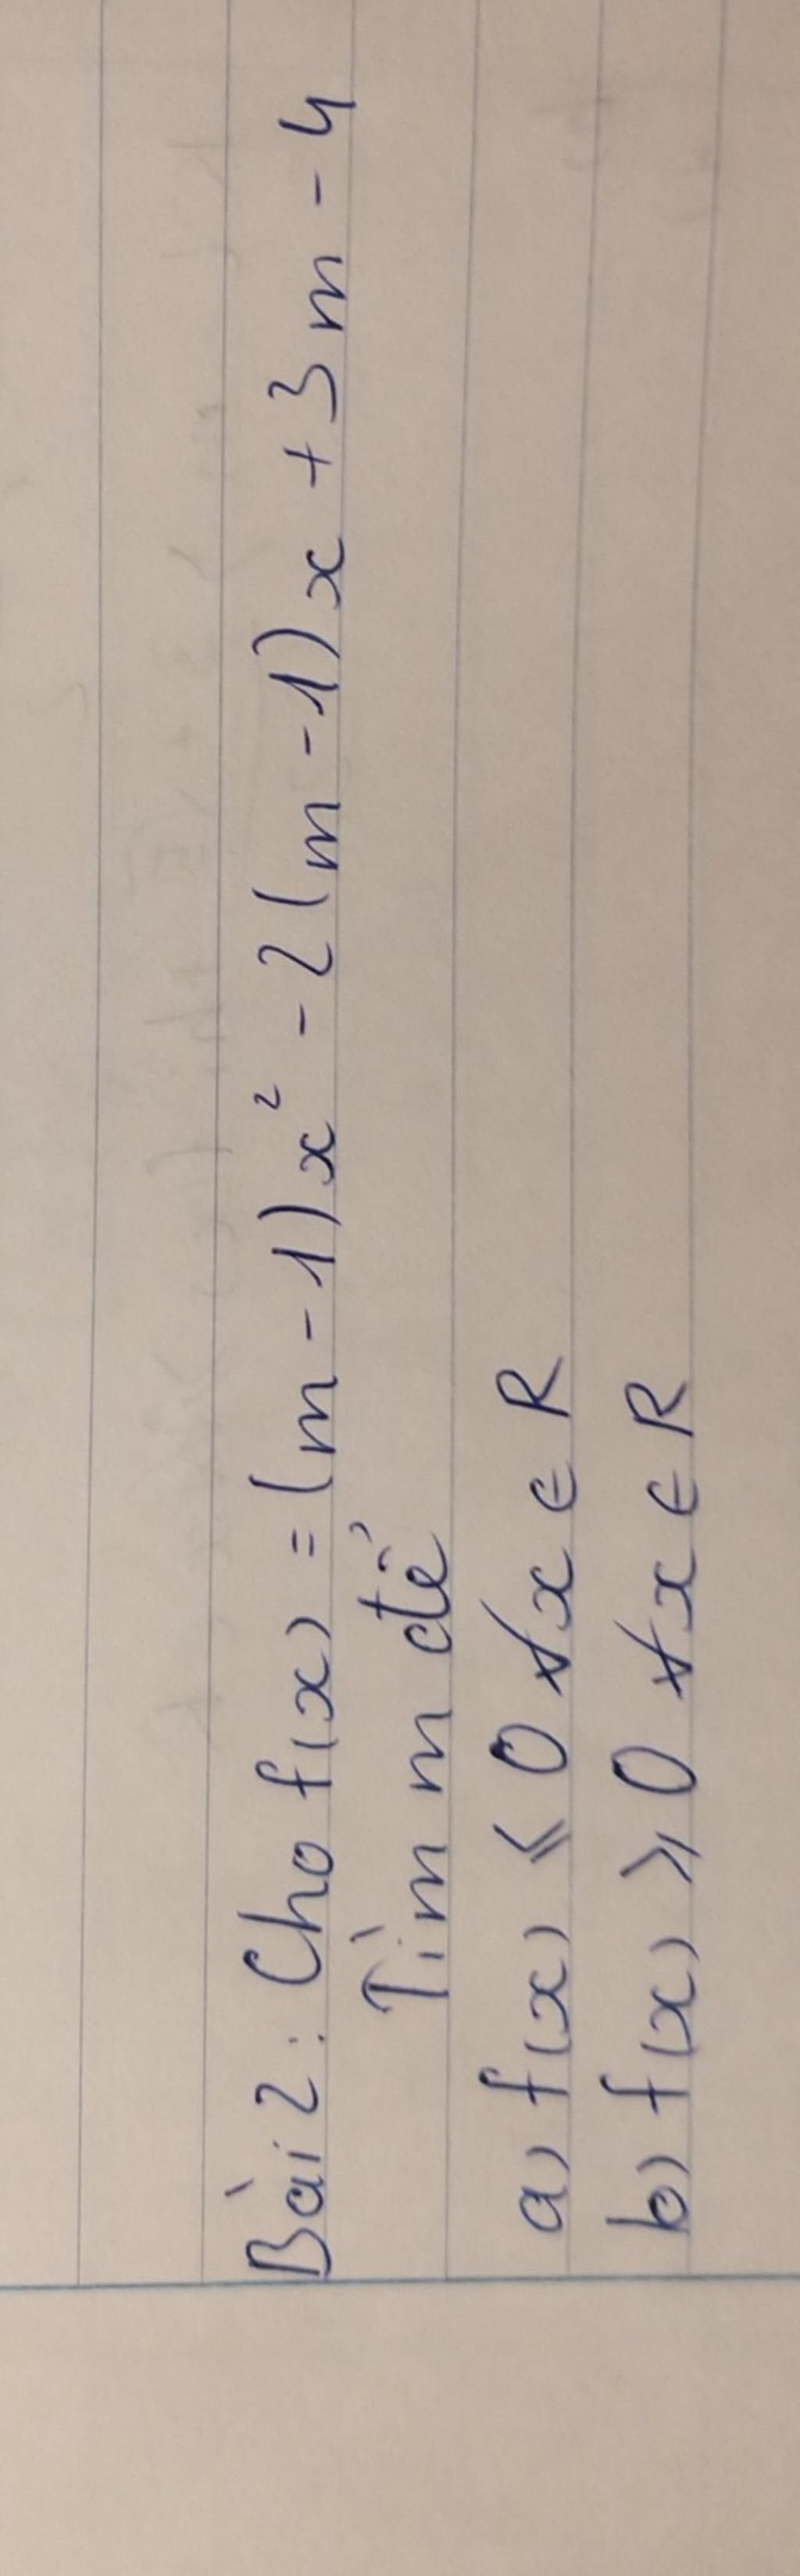 Bài 2: Cho f(x) = (m - 1)x² - 2(m - 1)x + 3m - 4
Tìm m để
a) f(x) ⩽ 0 ∀x ∈ R
b) f(x) ⩾ 0 ∀x ∈ R